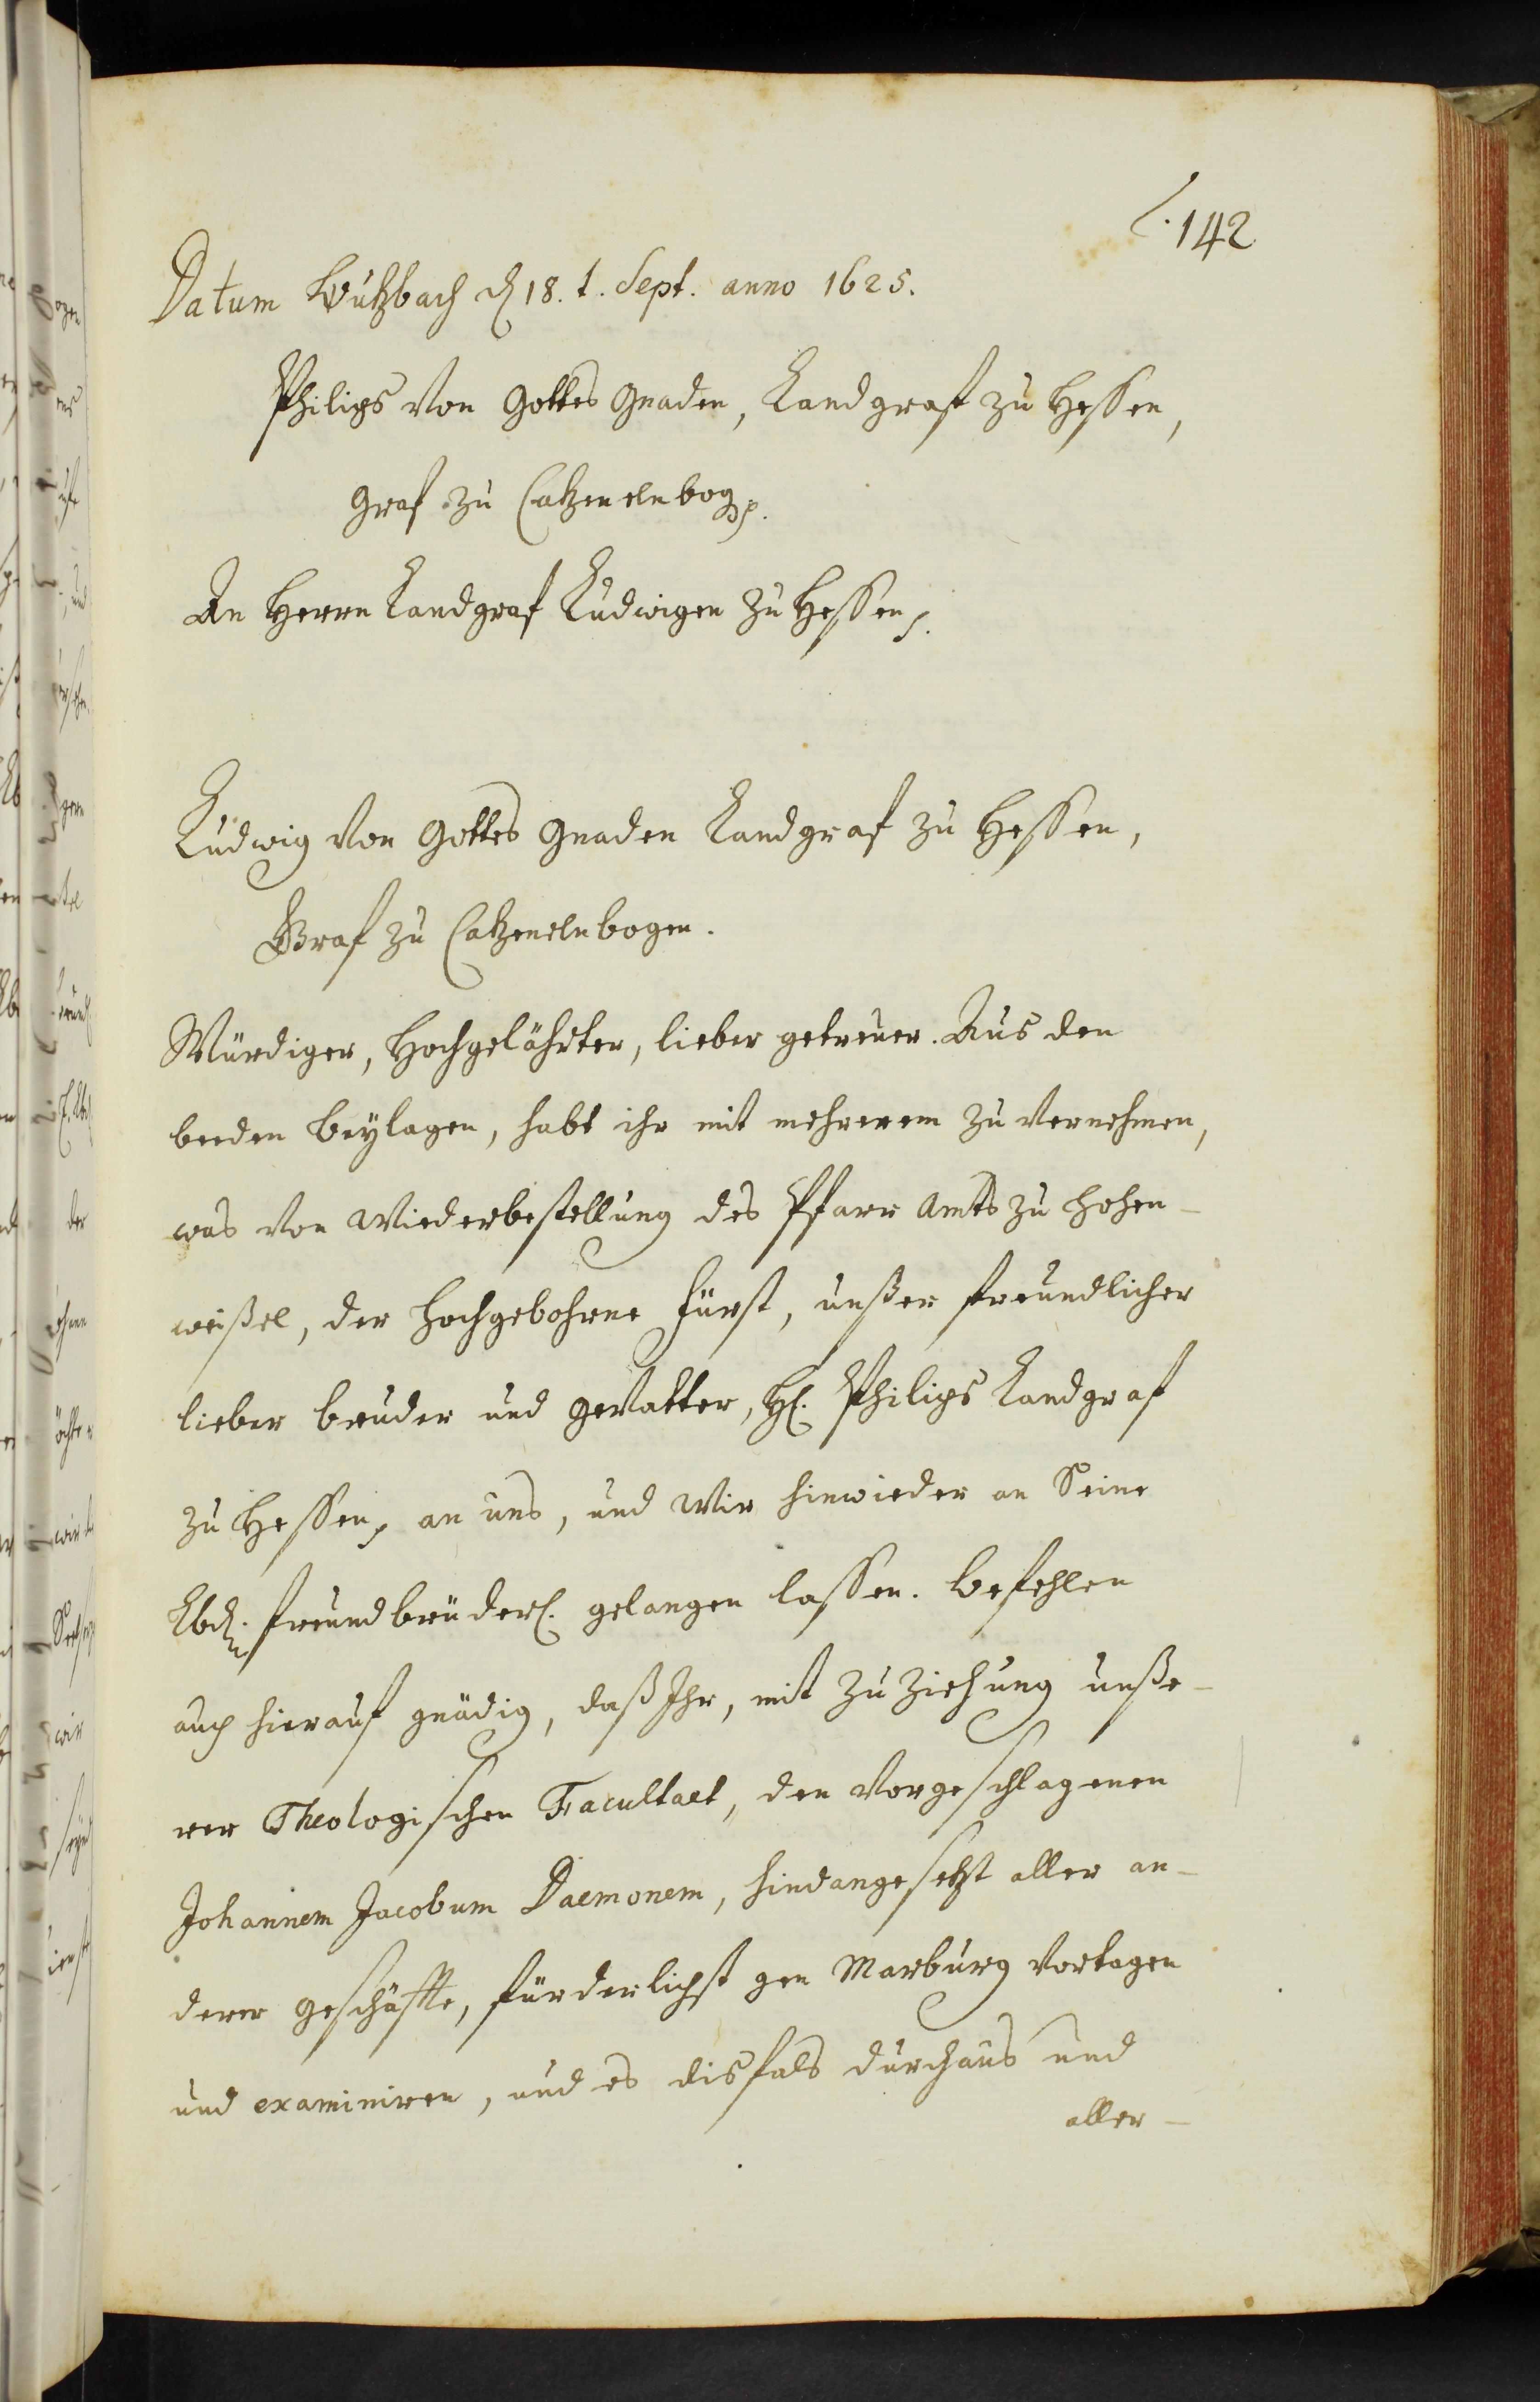 142
Datum Butzbach d 18. t. Sept. anno 1625.
Philips von Gottes Gnaden, Landgraff zu Hessen,
Graf zu Catzenelnbog
An Herrn Landgraf Ludwigen zu Hessen
Ludwig von Gottes Gnaden Landgraf zu Hessen,
Graf zu Catzenelnbogen.
Würdiger, Hochgelährter, lieber getreuer. Aus den
beeden beylagen, habt ihr mit mehrerem zu vernehmen,
was von Wiederbestellung des Pfarr Amts zu Hohen-
weißel, der Hochgebohrne Fürst, unßer freundlicher
lieber bruder und Gevatter, H. Philips Landgraf
zu Hessen, an uns, und Wir hinwieder an Seine
Lbd. freundbrüderl. gelangen lassen. Befehlen
auch hierauf gnädig, daß Ihr, mit Zuziehung unße-
rer Theologischen Facultaet, den vorgeschlagenen
Johannem Jacobum Daemonem, hindangesetzt aller an-
derer Geschäffte, fürderlichst gen Marburg vertagen
und examiniren, und es disfals durchaus und
aller-